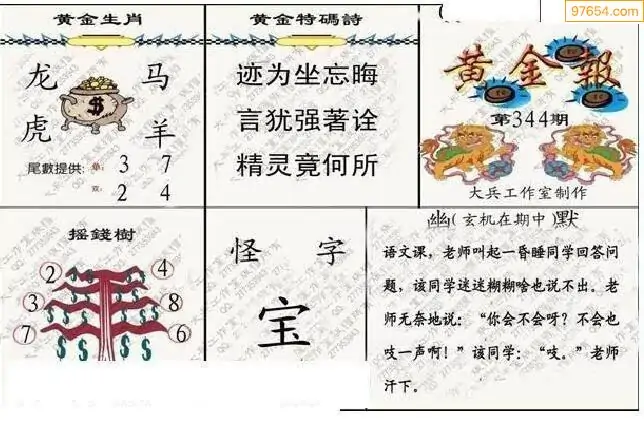 97654.com
黄金生肖
龙 马
虎 羊
尾數提供: 單: 3 7
双: 2 4
黄金特碼詩
迹为坐忘晦
言犹强著诠
精灵竟何所
黄金報
第344期
大兵工作室制作
摇錢樹
2 4
3 8
7 6
怪 字
宝
幽(玄机在期中)默
语文课，老师叫起一昏睡同学回答问
题，该同学迷迷糊糊啥也说不出。老
师无奈地说：“你会不会呀？不会也
吱一声啊！”该同学：“吱。”老师
汗下。